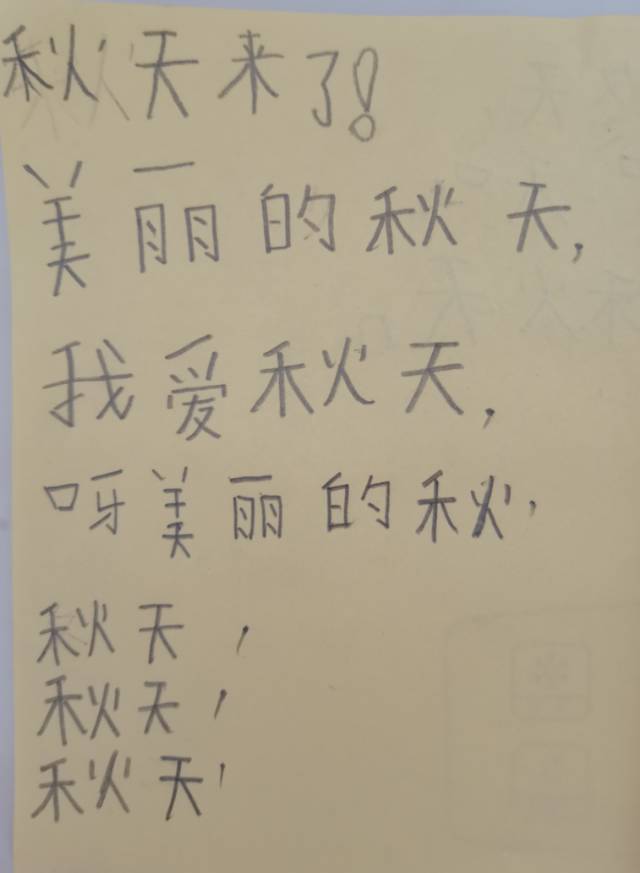 秋天来了！
美丽的秋天，
我爱秋天，
呀美丽的秋，
秋天，
秋天，
秋天，